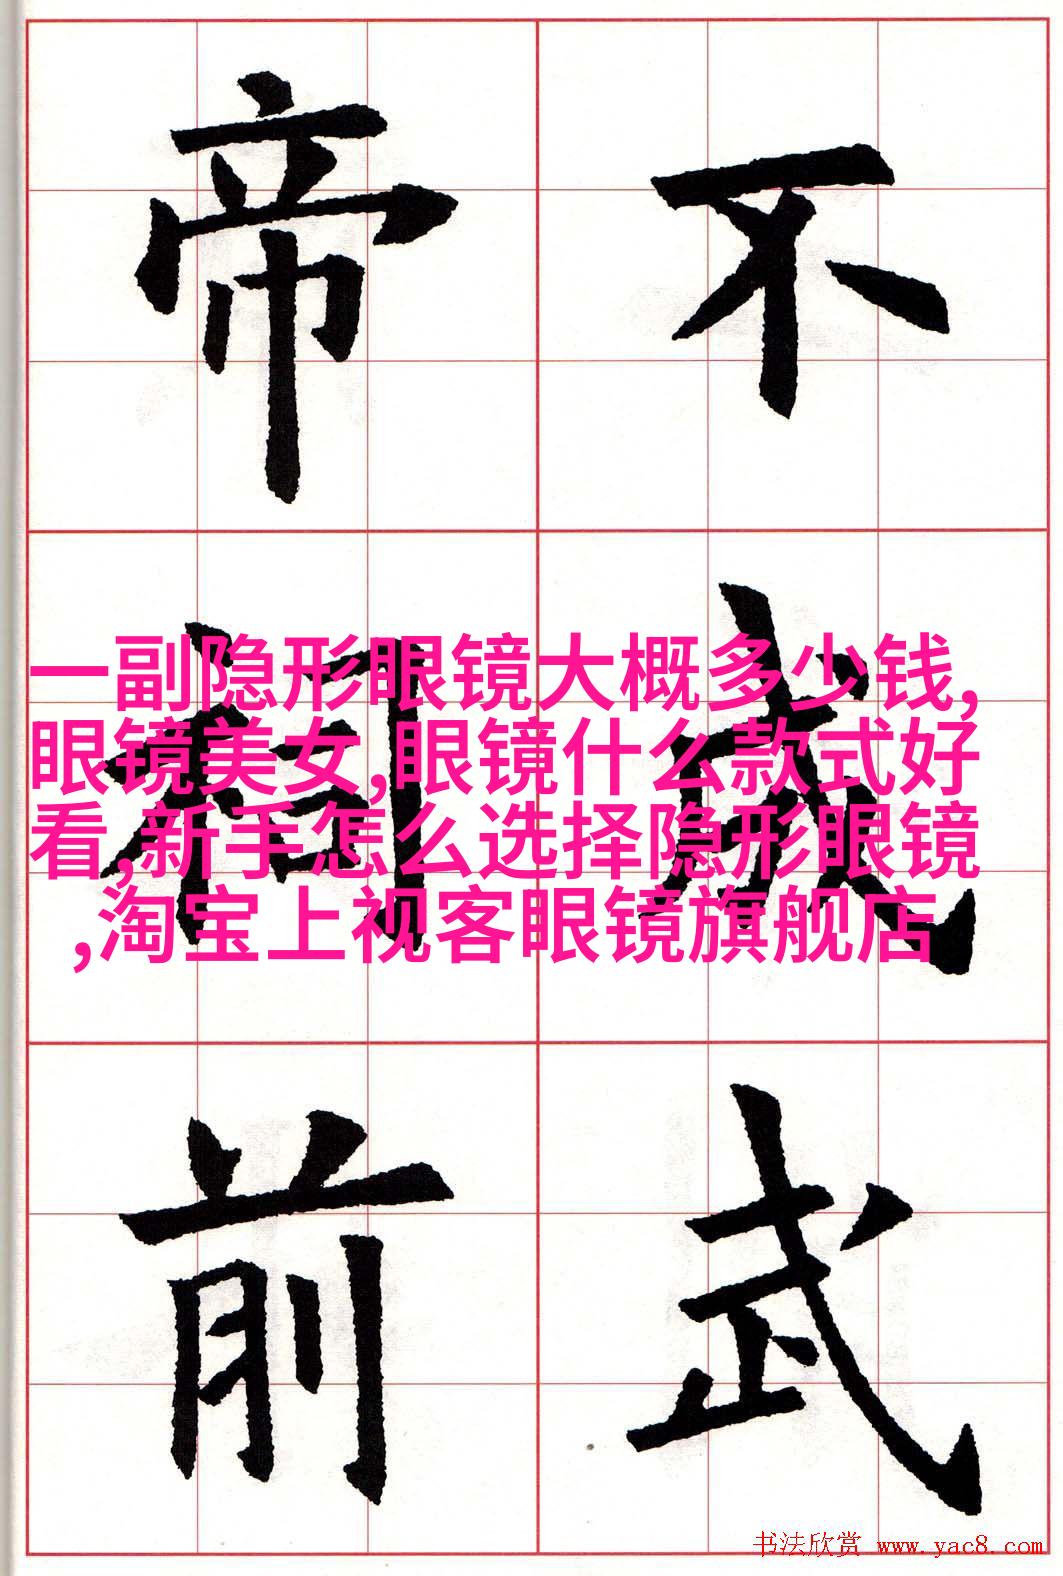 帝 不
相 成
一副隐形眼镜大概多少钱,
眼镜美女,眼镜什么款式好
看,新手怎么选择隐形眼镜
,淘宝上视客眼镜旗舰店
前 武
书法欣赏 www.yac8.com